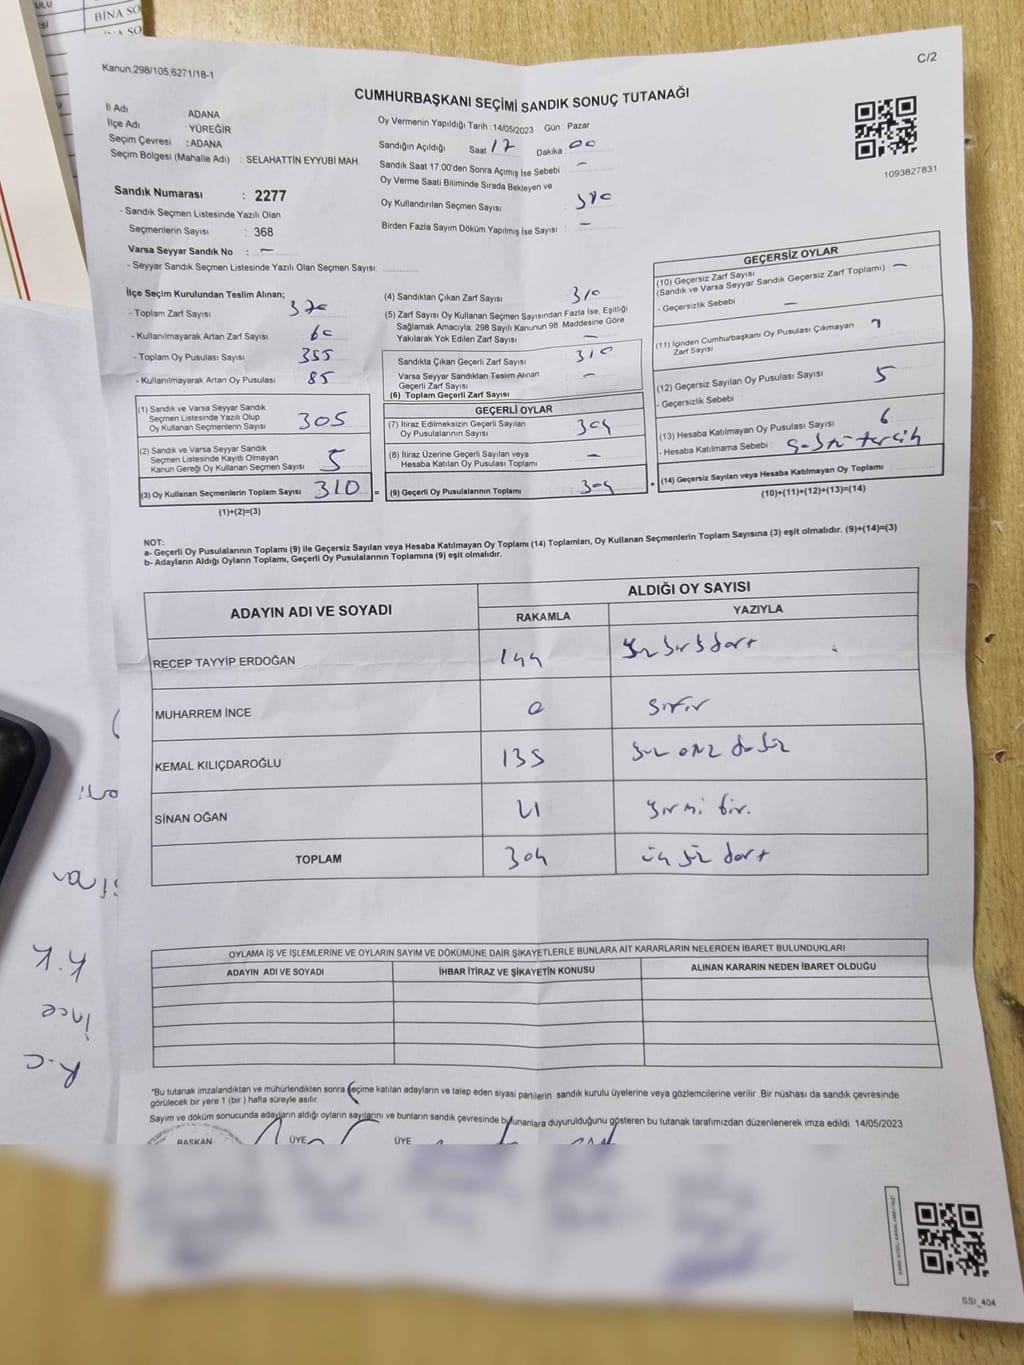 BİNA SO
Kanun.298/105,6271/18-1
C/2
CUMHURBAŞKANI SEÇİMİ SANDIK SONUÇ TUTANAĞI
İl Adı : ADANA
İlçe Adı : YÜREĞİR
Seçim Çevresi : ADANA
Seçim Bölgesi (Mahalle Adı) : SELAHATTİN EYYUBİ MAH.
Oy Vermenin Yapıldığı Tarih :14/05/2023 Gün : Pazar
Sandığın Açıldığı Saat 17 Dakika 00
Sandık Saat 17.00'den Sonra Açımış İse Sebebi : —
Oy Verme Saati Bitiminde Sırada Bekleyen ve
Oy Kullandırılan Seçmen Sayısı :
Birden Fazla Sayım Döküm Yapılmış İse Sayısı : —
1093827831
Sandık Numarası : 2277
- Sandık Seçmen Listesinde Yazılı Olan
Seçmenlerin Sayısı : 368
Varsa Seyyar Sandık No : —
- Seyyar Sandık Seçmen Listesinde Yazılı Olan Seçmen Sayısı:
İlçe Seçim Kurulundan Teslim Alınan;
- Toplam Zarf Sayısı : 370
- Kullanılmayarak Artan Zarf Sayısı : 60
- Toplam Oy Pusulası Sayısı : 355
- Kullanılmayarak Artan Oy Pusulası : 85
(1) Sandık ve Varsa Seyyar Sandık
Seçmen Listesinde Yazılı Olup
Oy Kullanan Seçmenlerin Sayısı 305
(2) Sandık ve Varsa Seyyar Sandık
Seçmen Listesinde Kayıtlı Olmayan
Kanun Gereği Oy Kullanan Seçmen Sayısı 5
(3) Oy Kullanan Seçmenlerin Toplam Sayısı 310 =
(1)+(2)=(3)
(4) Sandıktan Çıkan Zarf Sayısı 310
(5) Zarf Sayısı Oy Kullanan Seçmen Sayısından Fazla İse, Eşitliği
Sağlamak Amacıyla; 298 Sayılı Kanunun 98. Maddesine Göre
Yakılarak Yok Edilen Zarf Sayısı —
Sandıkta Çıkan Geçerli Zarf Sayısı 310
Varsa Seyyar Sandıktan Teslim Alınan
Geçerli Zarf Sayısı —
(6) Toplam Geçerli Zarf Sayısı
GEÇERLİ OYLAR
(7) İtiraz Edilmeksizin Geçerli Sayılan
Oy Pusulalarının Sayısı 304
(8) İtiraz Üzerine Geçerli Sayılan veya
Hesaba Katılan Oy Pusulası Toplamı —
(9) Geçerli Oy Pusulalarının Toplamı 304 +
GEÇERSİZ OYLAR
(10) Geçersiz Zarf Sayısı
(Sandık ve Varsa Seyyar Sandık Geçersiz Zarf Toplamı) —
- Geçersizlik Sebebi —
(11) İçinden Cumhurbaşkanı Oy Pusulası Çıkmayan
Zarf Sayısı
(12) Geçersiz Sayılan Oy Pusulası Sayısı 5
- Geçersizlik Sebebi
(13) Hesaba Katılmayan Oy Pusulası Sayısı 6
- Hesaba Katılmama Sebebi :
(14) Geçersiz Sayılan veya Hesaba Katılmayan Oy Toplamı
(10)+(11)+(12)+(13)=(14)
NOT:
a- Geçerli Oy Pusulalarının Toplamı (9) ile Geçersiz Sayılan veya Hesaba Katılmayan Oy Toplamı (14) Toplamları, Oy Kullanan Seçmenlerin Toplam Sayısına (3) eşit olmalıdır. (9)+(14)=(3)
b- Adayların Aldığı Oyların Toplamı, Geçerli Oy Pusulalarının Toplamına (9) eşit olmalıdır.
ADAYIN ADI VE SOYADI ALDIĞI OY SAYISI
RAKAMLA YAZIYLA
RECEP TAYYİP ERDOĞAN 144 yüz kırk dört
MUHARREM İNCE 0 sıfır
KEMAL KILIÇDAROĞLU 139 yüz otuz dokuz
SİNAN OĞAN 21 yirmi bir.
TOPLAM 304 üç yüz dört
OYLAMA İŞ VE İŞLEMLERİNE VE OYLARIN SAYIM VE DÖKÜMÜNE DAİR ŞİKAYETLERLE BUNLARA AİT KARARLARIN NELERDEN İBARET BULUNDUKLARI
ADAYIN ADI VE SOYADI İHBAR İTİRAZ VE ŞİKAYETİN KONUSU ALINAN KARARIN NEDEN İBARET OLDUĞU
*Bu tutanak imzalandıktan ve mühürlendikten sonra seçime katılan adayların ve talep eden siyasi partilerin sandık kurulu üyelerine veya gözlemcilerine verilir. Bir nüshası da sandık çevresinde
görülecek bir yere 1 (bir ) hafta süreyle asılır.
Sayım ve döküm sonucunda adayların aldığı oyların sayılarını ve bunların sandık çevresinde bulunanlara duyurulduğunu gösteren bu tutanak tarafımızdan düzenlenerek imza edildi. 14/05/2023
BAŞKAN ÜYE ÜYE
K.K
ince
R.C
SSI_404